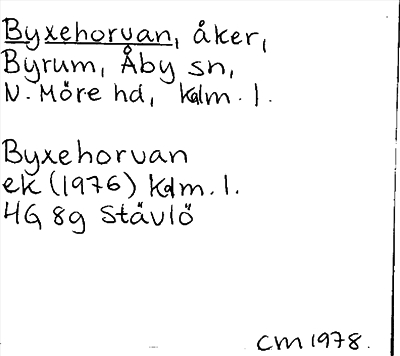 Byxehorvan, åker,
Byrum, Åby sn,
N. Möre hd, Kalm. l.
Byxehorvan
ek (1976) Kalm. l.
4G 8g Stävlö
CM 1978.